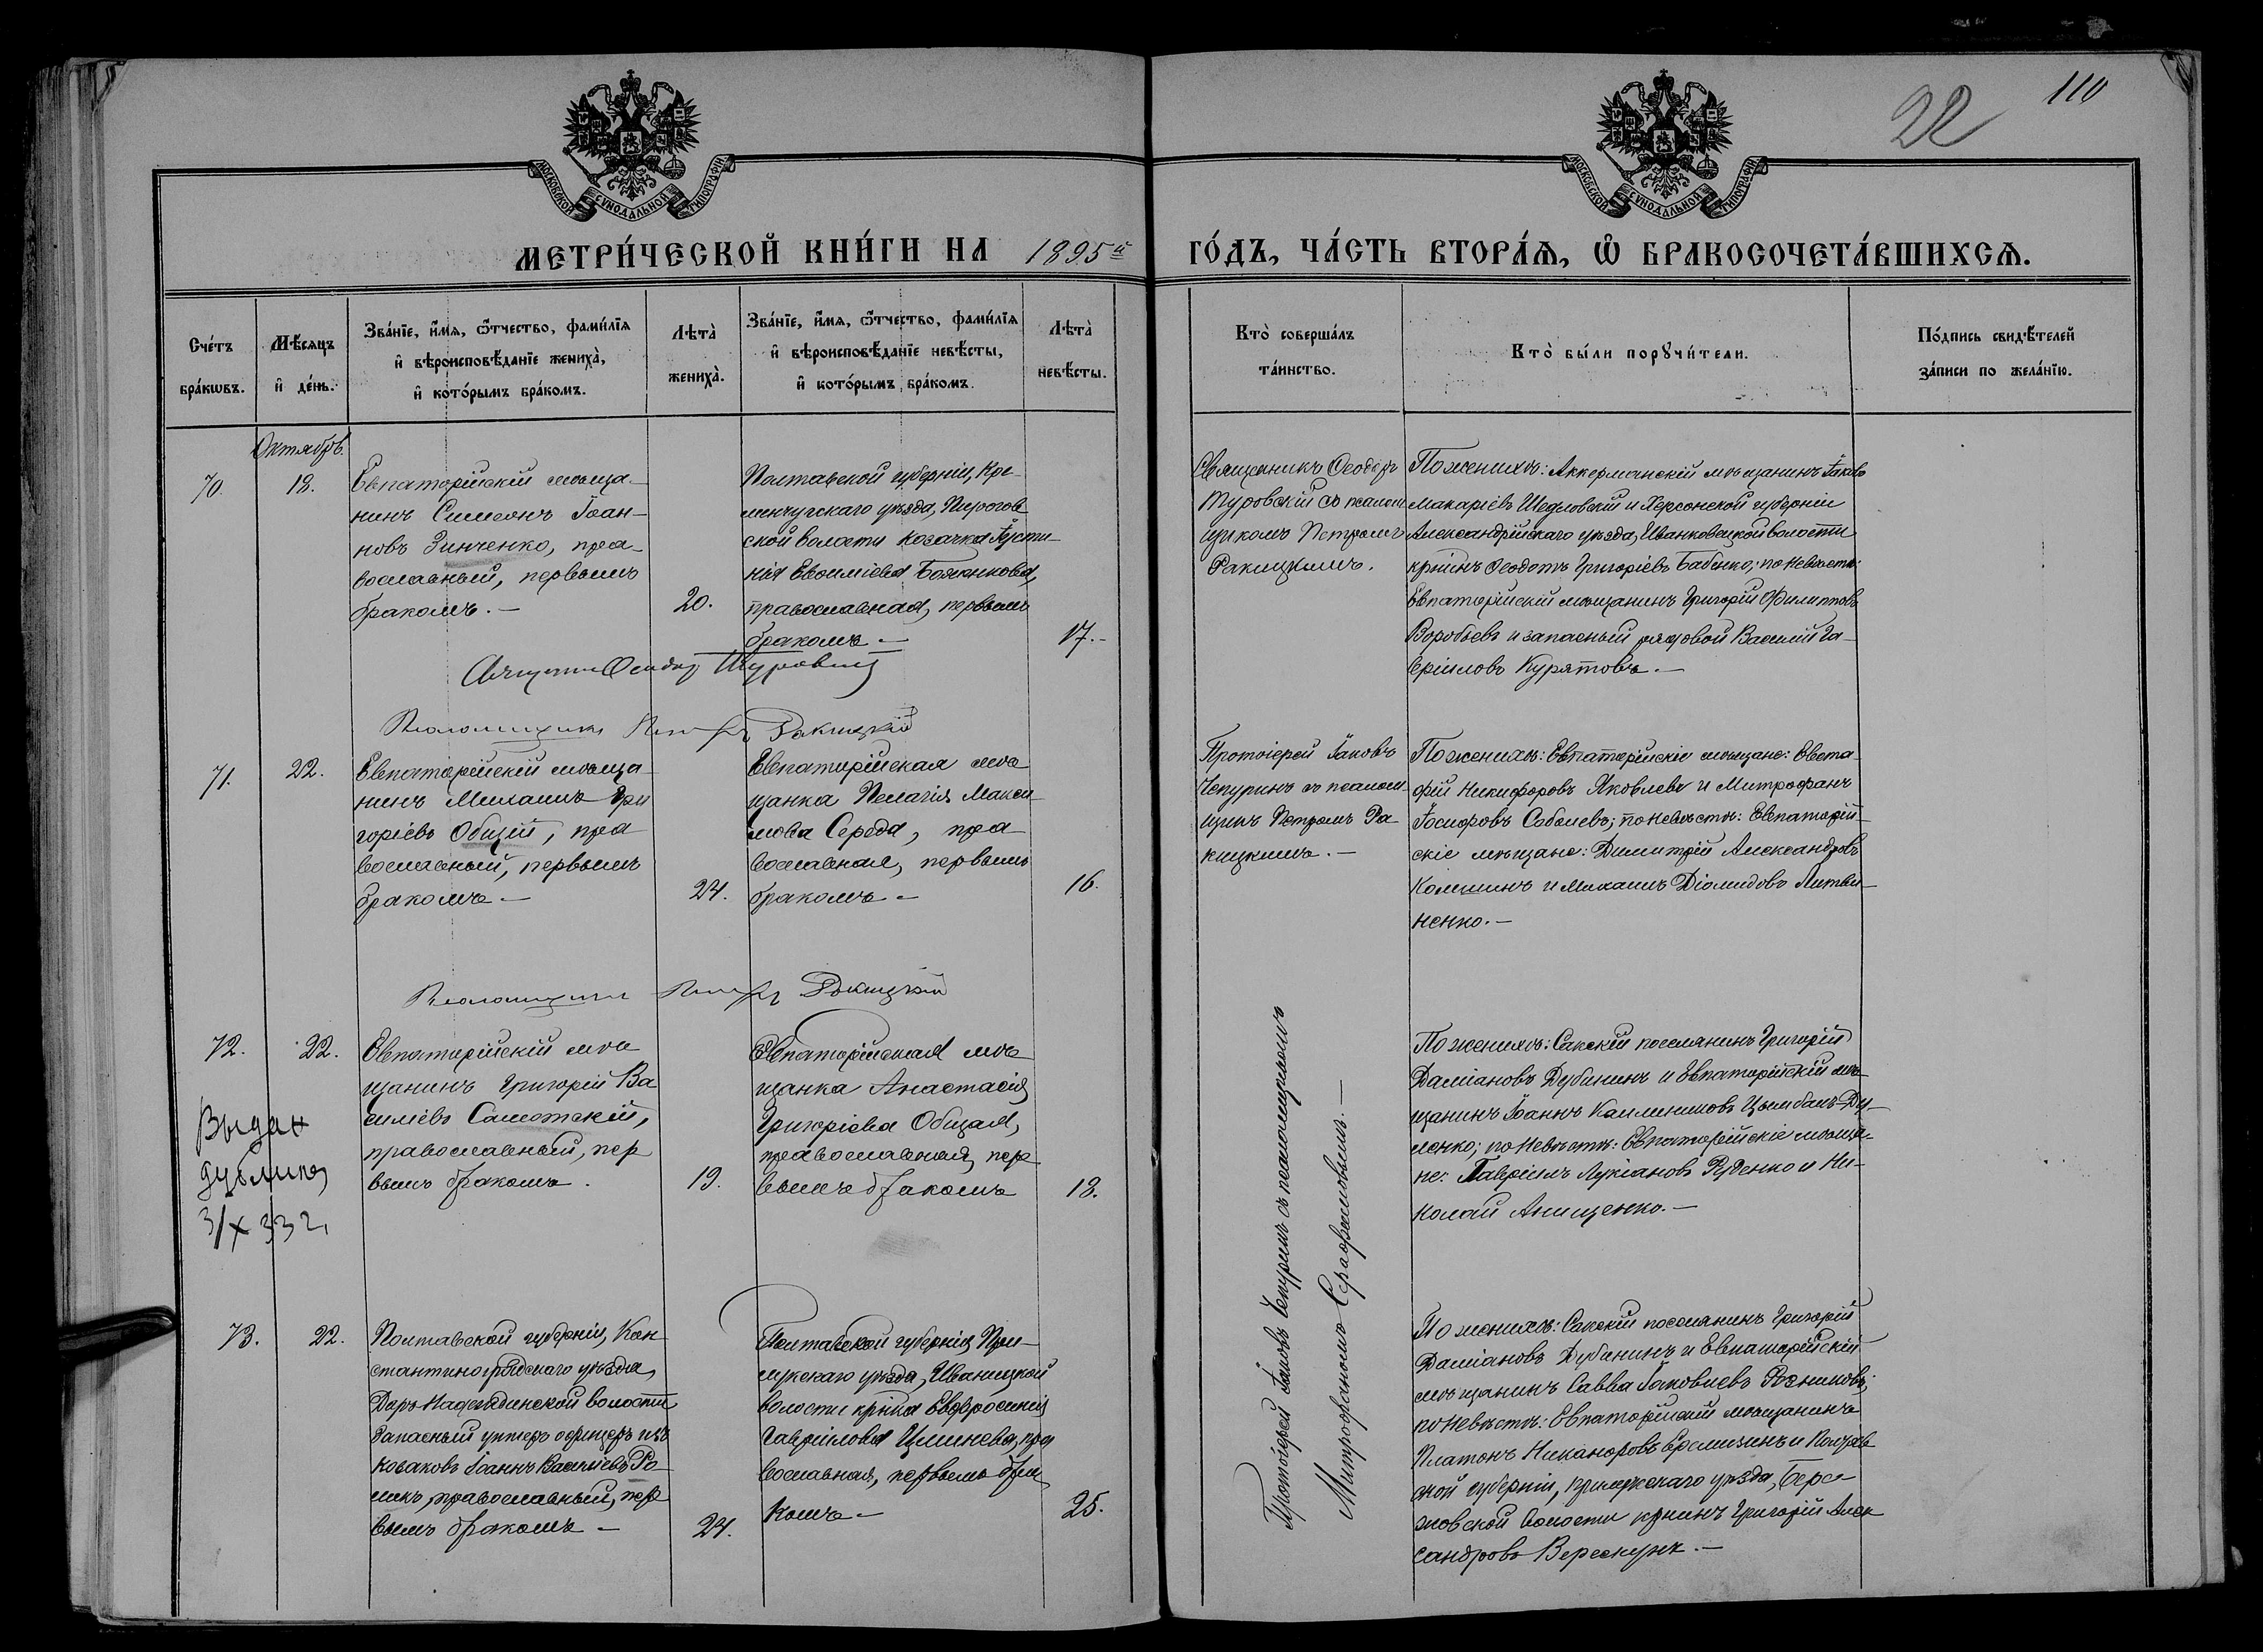 22
110
МОСКОВСКОЙ СѴНОДАЛЬНОЙ ТИПОГРАФІИ
МОСКОВСКОЙ СѴНОДАЛЬНОЙ ТИПОГРАФІИ
МЕТРИ́ЧЕСКОЙ КНИ́ГИ НА 1895й ГО́ДЪ, ЧА́СТЬ ВТОРА́Я, Ѡ҆ БРАКОСОЧЕТА́ВШИХСЯ.
Сче́тъ
бра́кѡвъ.
Мѣ́сяцъ
и҆ де́нь.
Зва́нїе, и҆́мя, ѻ҆́тчество, фами́лїя
и҆ вѣроисповѣ́данїе жениха̀,
и҆ кото́рымъ бра́комъ.
Лѣта̀
жениха̀.
Зва́нїе, и҆́мя, ѻ҆́тчество, фами́лїя
и҆ вѣроисповѣ́данїе невѣ́сты,
и҆ кото́рымъ бра́комъ.
Лѣта̀
невѣ́сты.
Кто̀ соверша́лъ
та́инство.
Кто̀ бы́ли порꙋчи́тели.
По́дпись свидѣ́телей
за́писи по жела́нїю.
Октябрь.
70.
18.
Евпаторійскій мѣща-
нинъ Симеонъ Іоан-
новъ Зинченко, пра-
вославный, первымъ
бракомъ. —
20.
Полтавской губерніи, Кре-
менчугскаго уѣзда, Пирогов
ской волости козачка Іусти-
нія Евѳиміева Боженкова,
православная, первымъ
бракомъ —
17. -
Священникъ Ѳеодоръ
Туровскій съ псалом
щикомъ Петромъ
Ракицкимъ.
По женихѣ: Аккерманскій мѣщанинъ Іаковъ
Макаріевъ Шедловскій и Херсонской губерніи
Александрійскаго уѣзда, Иванковецкой волости
кр҃нинъ Ѳеодотъ Григоріевъ Бабенко; по невѣстѣ:
Евпаторійскій мѣщанинъ Григорій Филипповъ
Воробьевъ и запасный рядовой Василій Га-
вріиловъ Курятовъ. —
Священникъ Ѳеодоръ Туровскій
Псаломщикъ Петръ Ракицкій
71.
22.
Евпаторійскій мѣща-
нинъ Михаилъ Гри
горіевъ Общій, пра
вославный, первымъ
бракомъ —
24.
Евпаторійская мѣ
щанка Пелагія Макси
мова Середа, пра
вославная, первымъ
бракомъ —
16.
Протоіерей Іаковъ
Чепуринъ съ псалом-
щик. Петромъ Ра
кицкимъ. —
По женихѣ: Евпаторійскіе мѣщане: Евста-
фій Никифоровъ Яковлевъ и Митрофанъ
Іосифовъ Соболевъ; по невѣстѣ: Евпаторій-
скіе мѣщане: Димитрій Александровъ
Комшинъ и Михаилъ Діомидовъ Литви-
ненко. —
Псаломщикъ Петръ Ракицкій
72.
22.
Евпаторійскій мѣ
щанинъ Григорій Ва
силіевъ Самотскій,
православный, пер
вымъ бракомъ.
19.
Евпаторійская мѣ
щанка Анастасія
Григоріева Общая,
православная, пер
вымъ бракомъ
18.
По женихѣ: Сакскій поселянинъ Григорій
Даміановъ Дубининъ и Евпаторійскій мѣ-
щанинъ Іоаннъ Каллиниковъ Цымбалъ-Ду-
менко; по невѣстѣ: Евпаторійскіе мѣща-
не: Гавріилъ Лукіановъ Руденко и Ни-
колай Анищенко. —
Выдан
дубликат
3/X 33 г.
Протоіерей Іаковъ Чепуринъ съ псаломщикомъ
Митрофаномъ Серафимовымъ. —
73.
22.
Полтавской губерніи, Кон
стантиноградскаго уѣзда,
Даръ-Надеждинской волости
Запасный унтеръ офицеръ изъ
козаковъ Іоаннъ Василіевъ Ро-
микъ, православный, пер
вымъ бракомъ —
24.
Полтавской губерніи, При-
лукскаго уѣзда, Иваницкой
волости кр҃нка Евфросинія
Гавріилова Цминева, пра
вославная, первымъ бра
комъ —
25.
По женихѣ: Сакскій поселянинъ Григорій
Даміановъ Дубининъ и Евпаторійскій
мѣщанинъ Савва Іаковлевъ Резниковъ;
по невѣстѣ: Евпаторійскій мѣщанинъ
Платонъ Никаноровъ Еремизинъ и Полтав
ской губерніи, Прилукскаго уѣзда, Бере-
зовской волости кр҃нинъ Григорій Алек
сандровъ Верескунъ. —